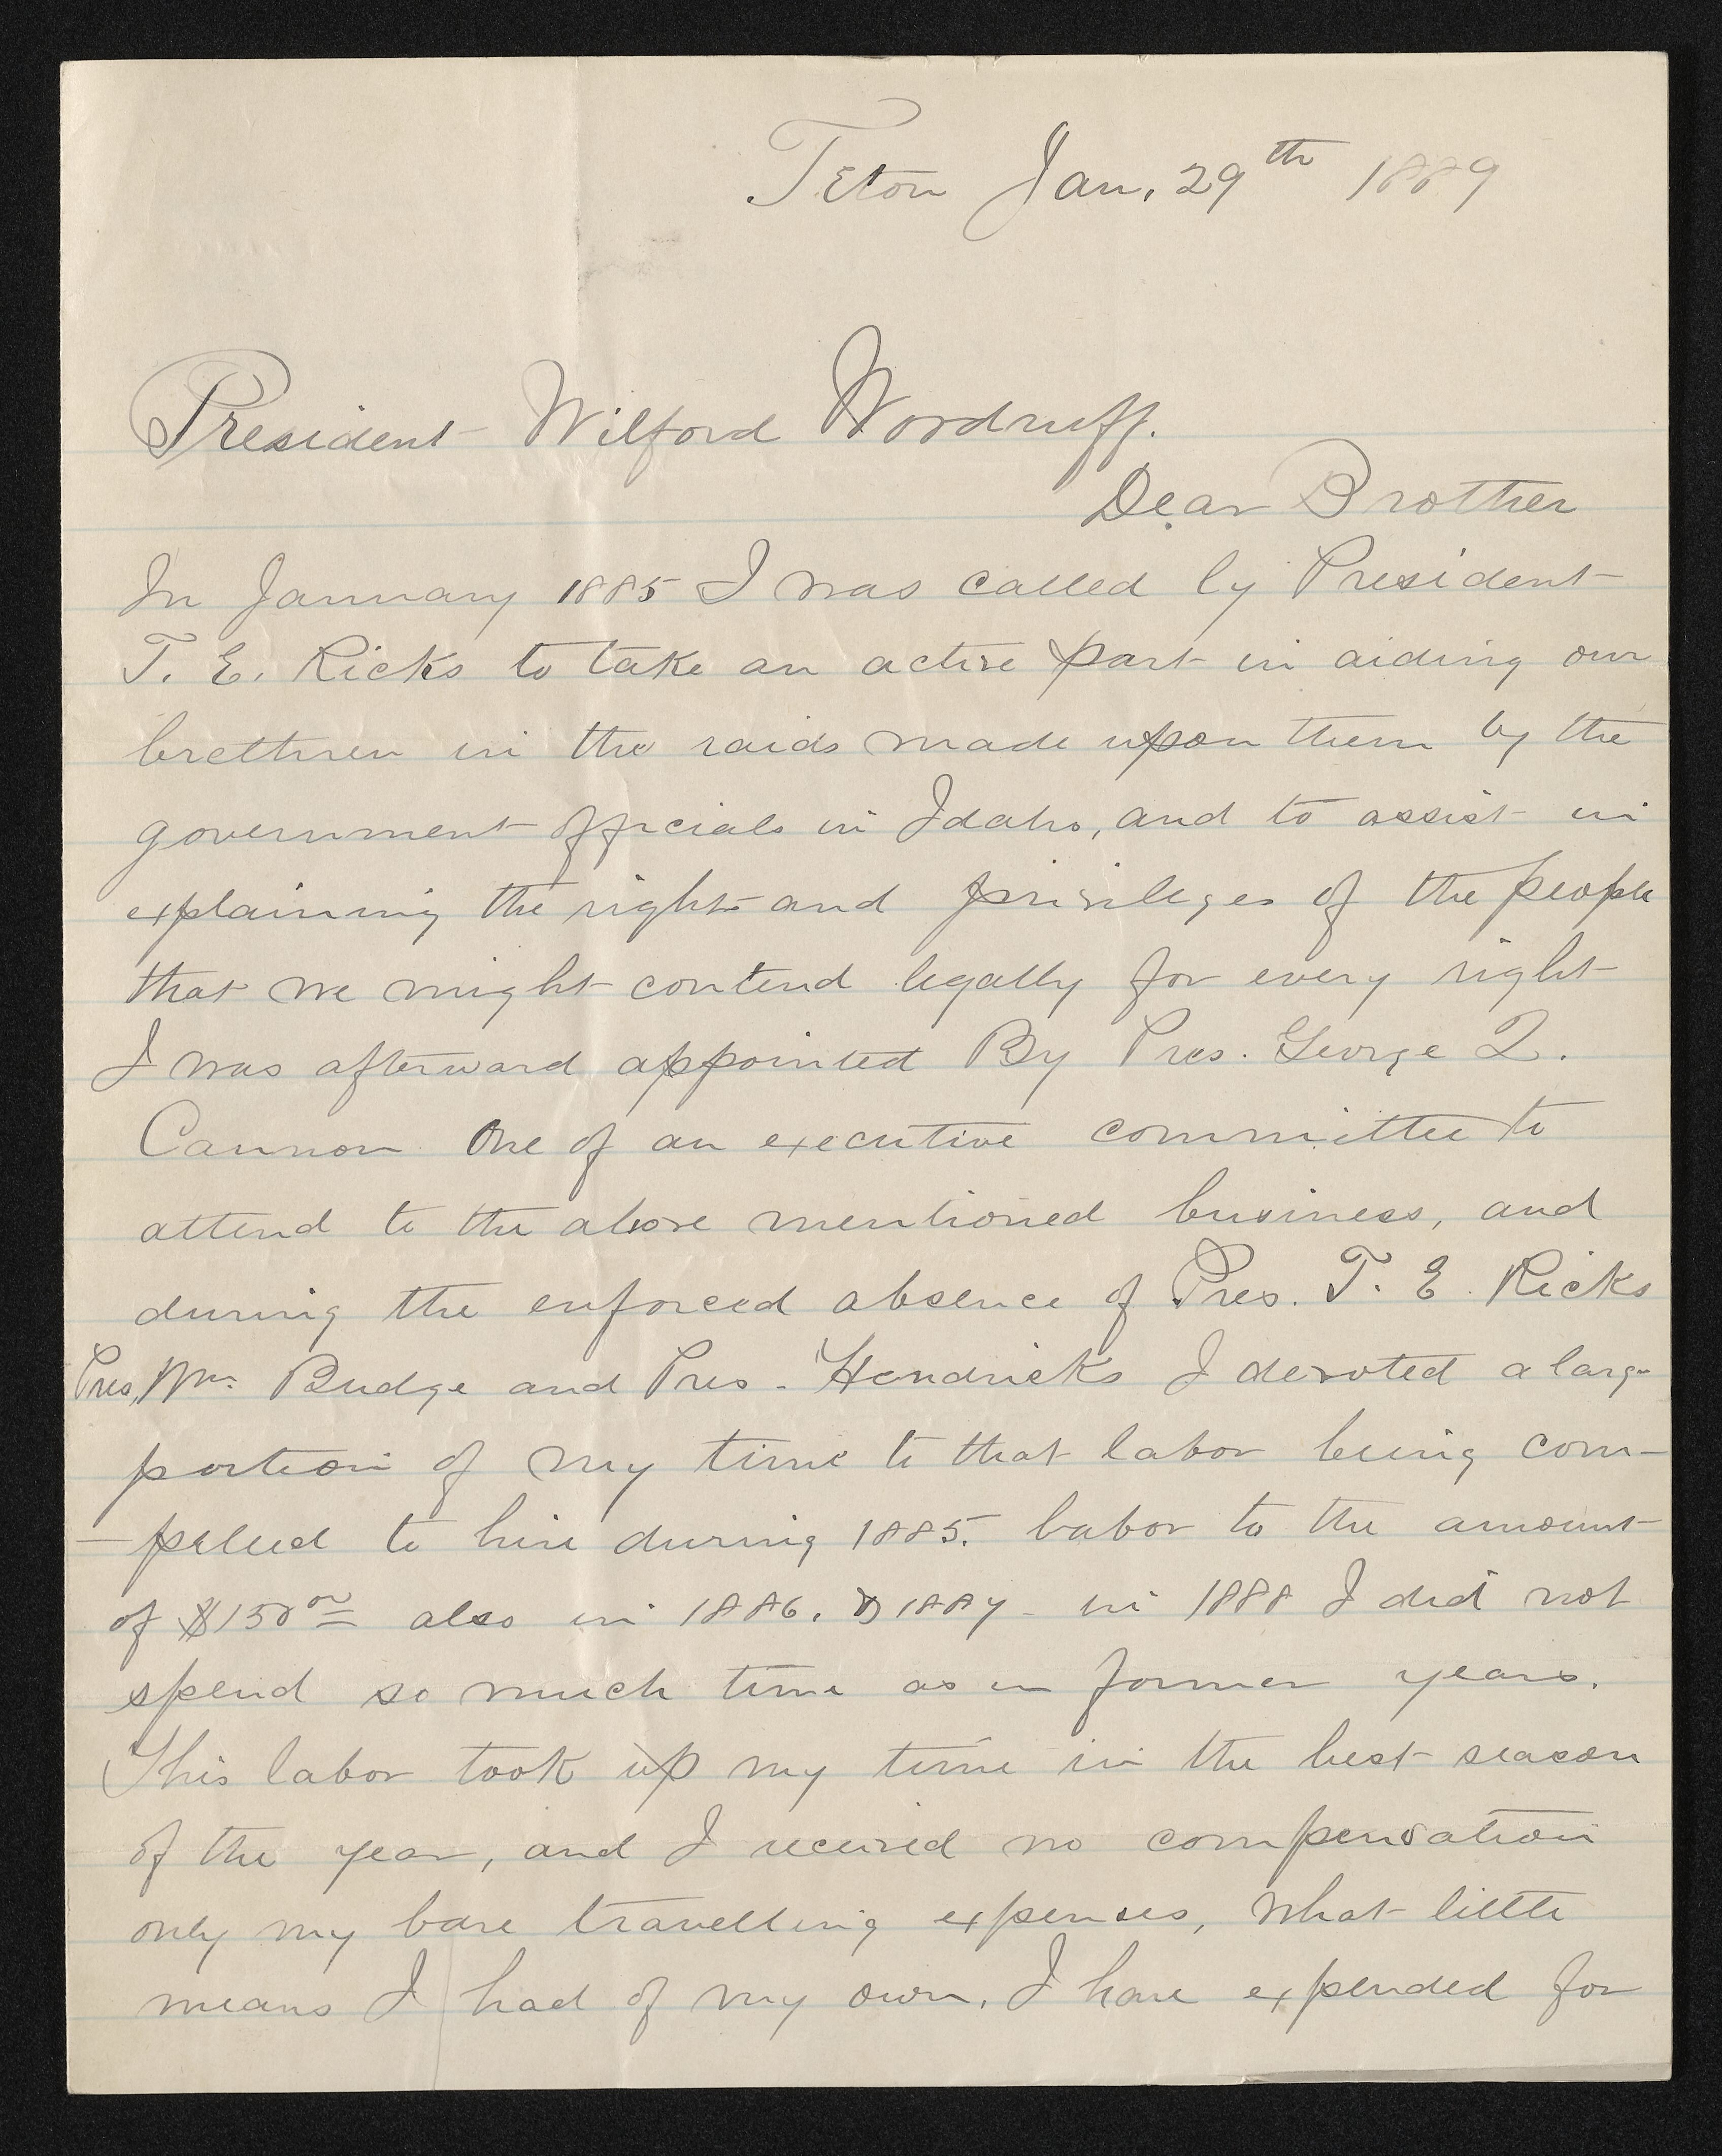 Teton Jan, 29th 1889
President Wilford Woodruff.
Dear Brother
In January 1885 I was called by President
T. E. Ricks to take an active part in aiding our
brethren in the raids made upon them by the
government officials in Idaho, and to assist in
explaining the rights and privileges of the people
that we might contend legally for every right
I was afterward appointed By Pres. George Q.
Cannon One of an executive committee to
attend to the above mentioned business, and
during the enforced absence of Pres. T. E. Ricks
Pres, Wm. Budge and Pres. Hendricks I devoted a large
portion of my time to that labor being com-
-pelled to hire during 1885. labor to the amount
of $150 00 also in 1886. & 1887 - in 1888 I did not
spend so much time as in former years.
This labor took up my time in the best season
of the year, and I received no compensation
only my bare travelling expenses, what little
means I had of my own, I have expended for